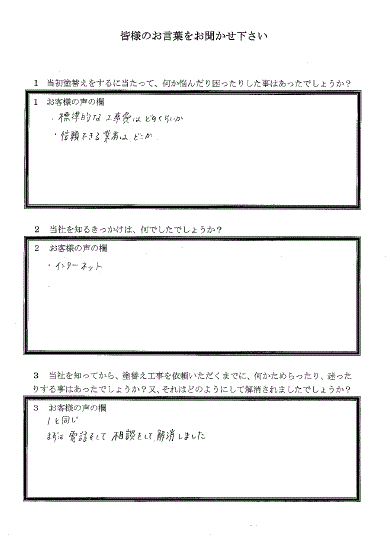 皆様のお言葉をお聞かせ下さい
1　当初塗替えをするに当たって、何か悩んだり困ったりした事はあったでしょうか？
1　お客様の声の欄
・標準的な工事費はどれくらいか
・信頼できる業者はどこか
2　当社を知るきっかけは、何でしたでしょうか？
2　お客様の声の欄
・インターネット
3　当社を知ってから、塗替え工事を依頼いただくまでに、何かためらったり、迷った
りする事はあったでしょうか？又、それはどのようにして解消されましたでしょうか？
3　お客様の声の欄
1と同じ
まずは電話をして相談をして解消しました